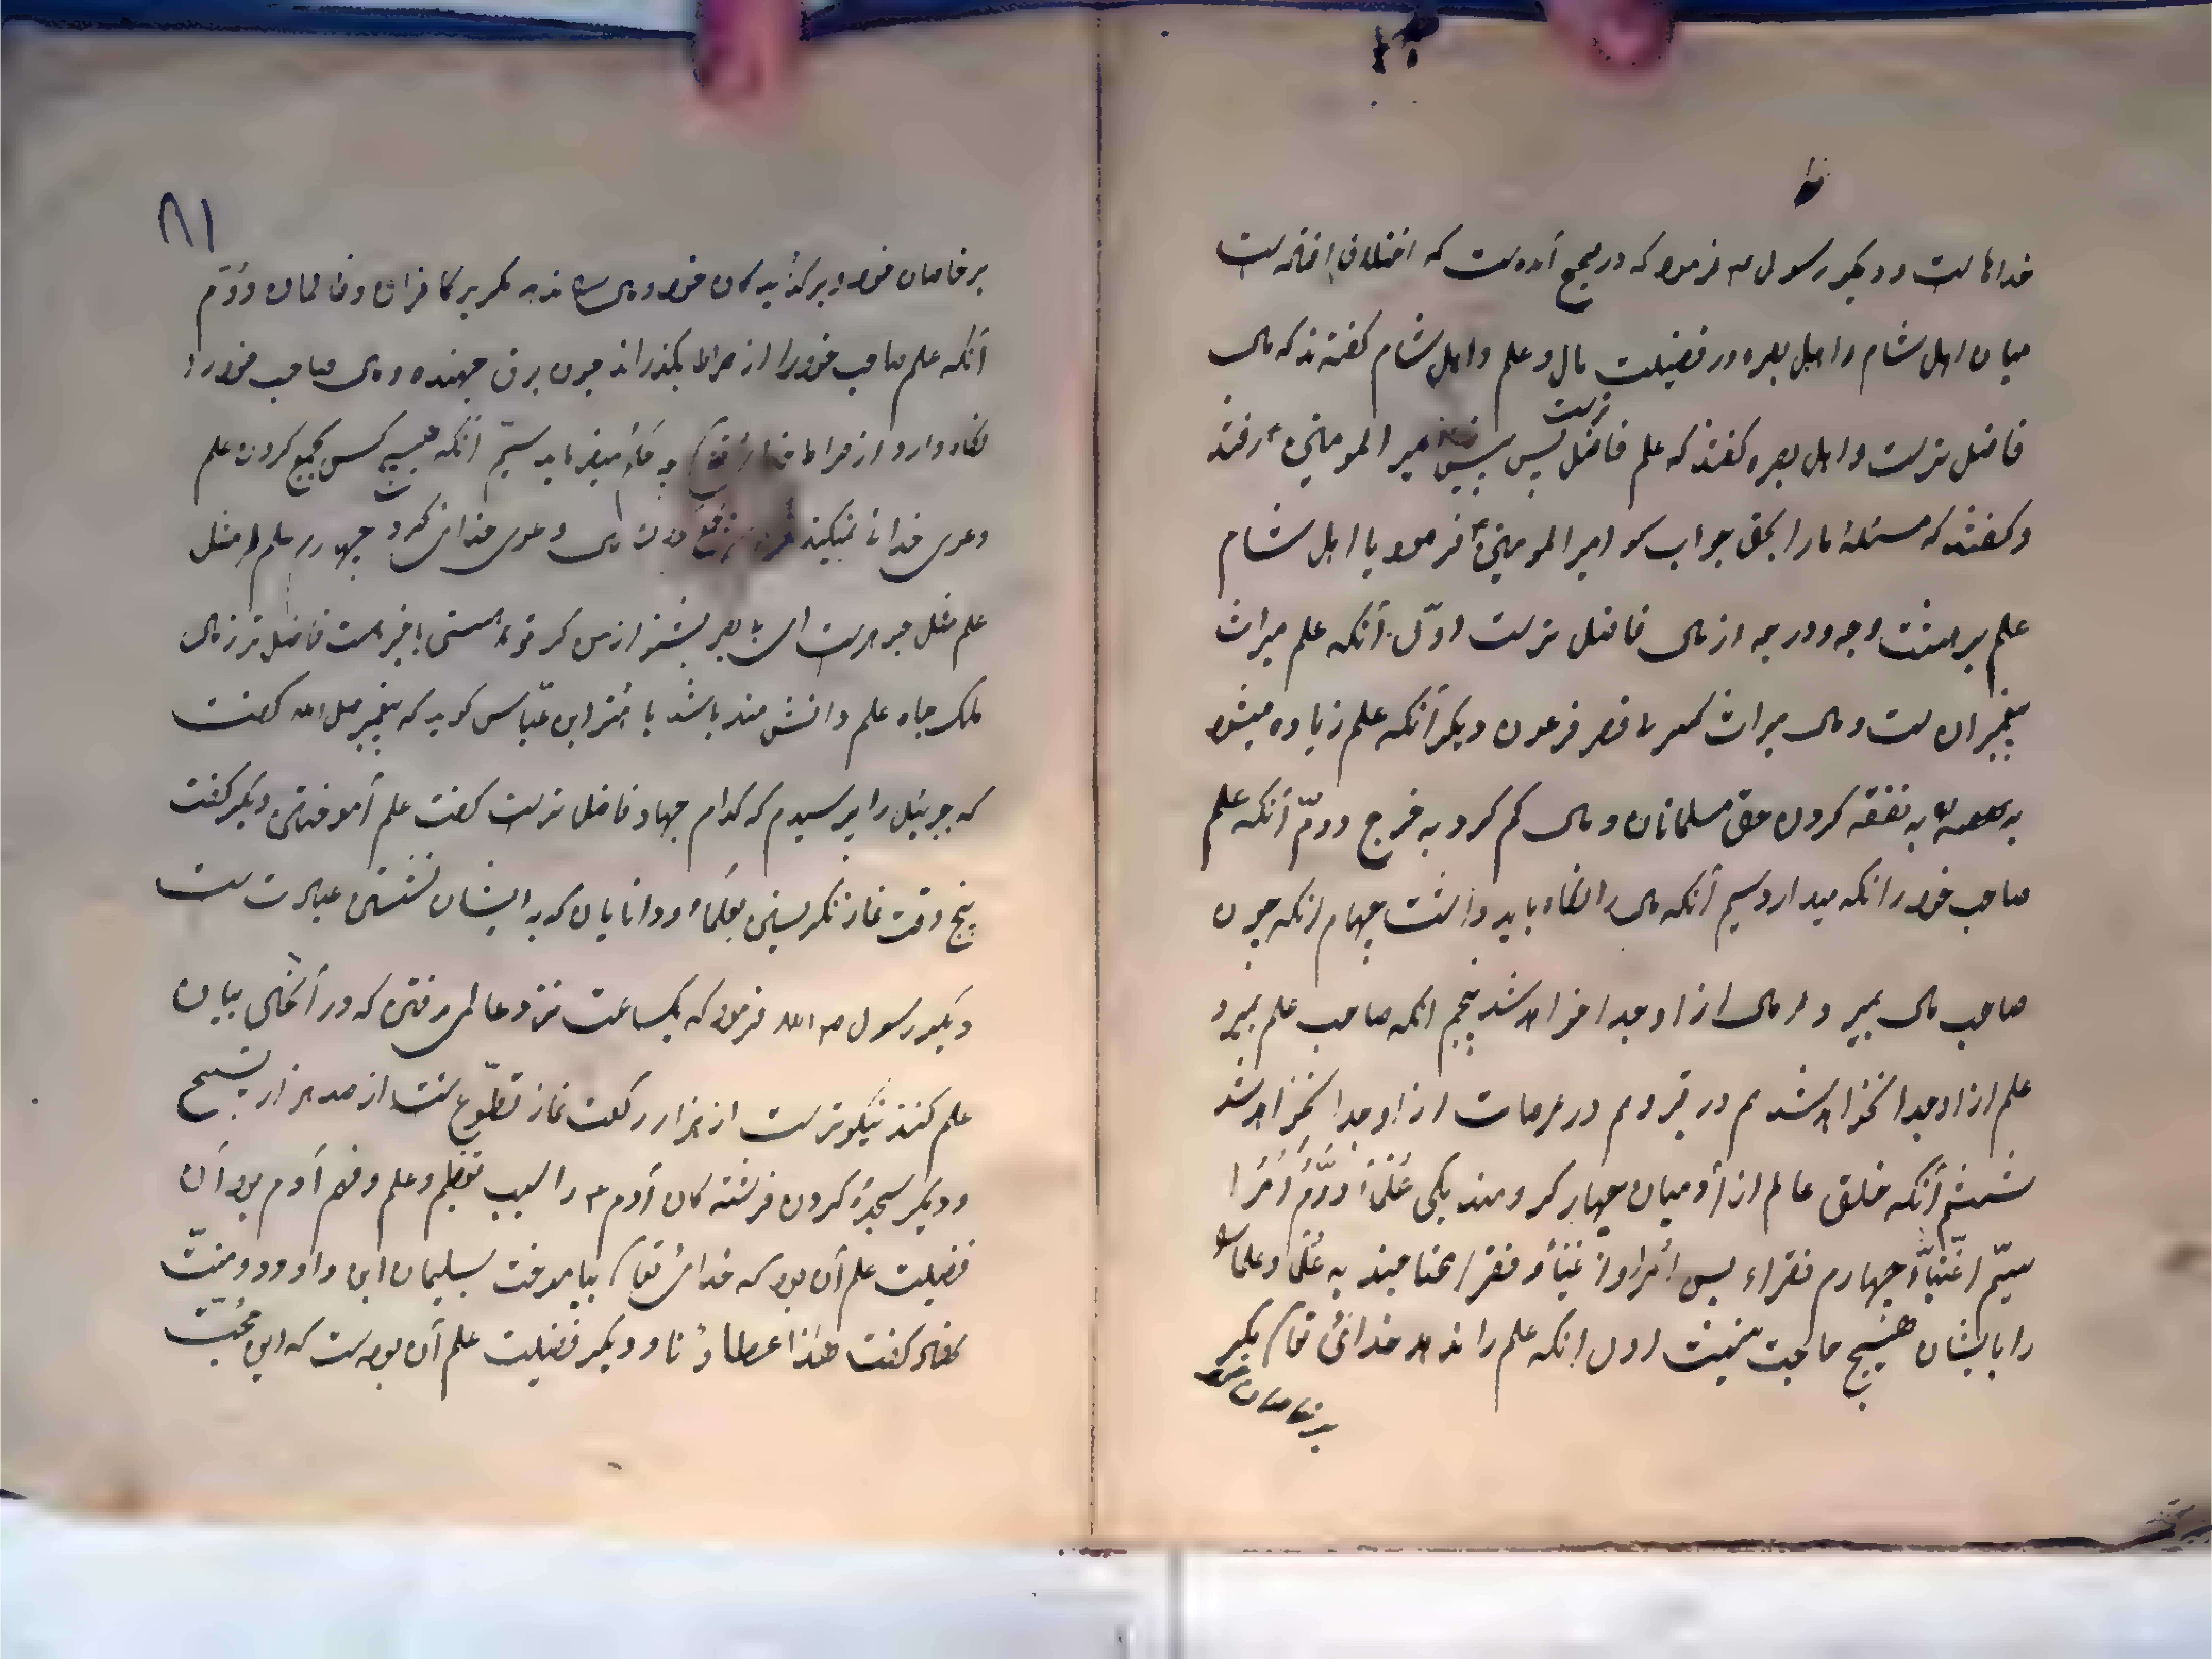 خداها ست و دیکر رسول ص فرمود که در مجمع آمدست که اختلاف افتاده ست
میان اهل شام و اهل بصره در فضیلت مال و علم و اهل شام کفتند که مال
فاضل ترست و اهل بصره کفتند که علم فاضل ترست پس پیش امیر المومنین ع رفتند
و کفتند که مسئلهٔ ما را بحق جواب کو امیر المومنین ع فرمود با اهل شام
علم بر هشت وجه و درجه از مال فاضل ترست اوّل آنکه علم میراث
پیغمبران ست و مال میراث فرعون دیکر آنکه علم زیاده میشود
به نفقه کردن حق مسلمانان و مال کم کردد به خرج دوّم آنکه علم
صاحب خود را نکه میدارد سیم آنکه مال را نکاه باید داشت چهارم انکه چون
صاحب مال بمیرد مال از او جدا خواهد شد پنجم انکه صاحب علم بمیرد
علم از او جدا نخواهد شد هم در قبر و هم در عرصات از او جدا نخواهد شد
ششم آنکه خلق عالم از آدمیان چهار کروهند یکی عُلَمأ دوّم اُمَرأ
سیّم اغنیأ چهارم فقراء پس اُمرا و اغنیأ و فقرا محتاجند به عُلَمأ و علماء
را با یشان هیچ حاجت نیست اول انکه علم را ندهد خدائ تعالی مکر
بر خاصان خود
۸۱
بر خاصان خود و برکذیدکان خود و مال ندهد مکر بر کافران و ظالمان دوّم
آنکه علم صاحب خود را از صراط بکذراند چون برق جهنده و مال صاحب خود را
نکاه دارد از صراط خدای تعالی میفرماید سیّم آنکه هیچ کس بجمع کردن علم
دعوی خدائی نمیکند مال دعوی خدائی کرد چهارم علم مثل
علم مثل جوهرست
ملک جاه علم دانش مند باشد ابن عبّاس کوید که پیغمبر صلی الله کفت
که جبرئیل را پرسیدم که کدام جهاد فاضل ترست کفت علم آموختن دیکر کفت
پنج وقت نماز نکریستن بعلمأ و دانایان که به ایشان نشستن عبادت ست
دیکر رسول ص الله فرمود که یکساعت نزد عالمی رفتن که در آنجای بیان
علم کنند نیکوترست از هزار رکعت نماز تطوّع ست از صد هزار تسبیح
و دیکر سجدهٔ کردن فرشتهکان آدم ع را بسبب تعظیم و علم و فهم آدم بود آن
فضیلت علم آن بود که خدای تعالی بیاموخت بسلیمان ابن داوود و منّت
نهاد کفت هذا عطاؤنا و دیکر فضیلت علم آن بوده ست که این محبّت